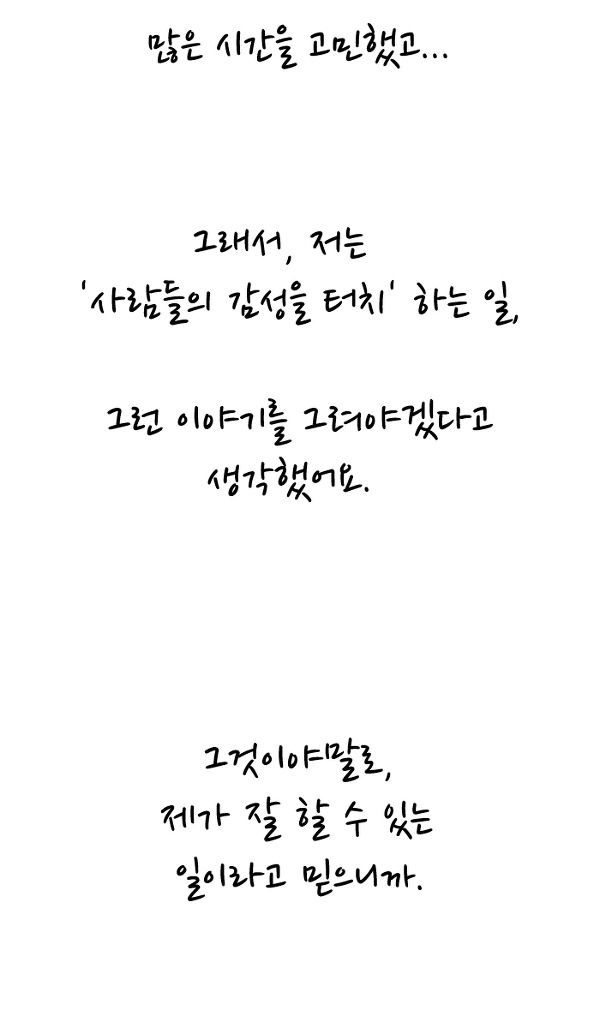 많은 시간을 고민했고...
그래서, 저는
'사람들의 감성을 터치' 하는 일,
그런 이야기를 그려야겠다고
생각했어요.
그것이야말로,
제가 잘 할 수 있는
일이라고 믿으니까.